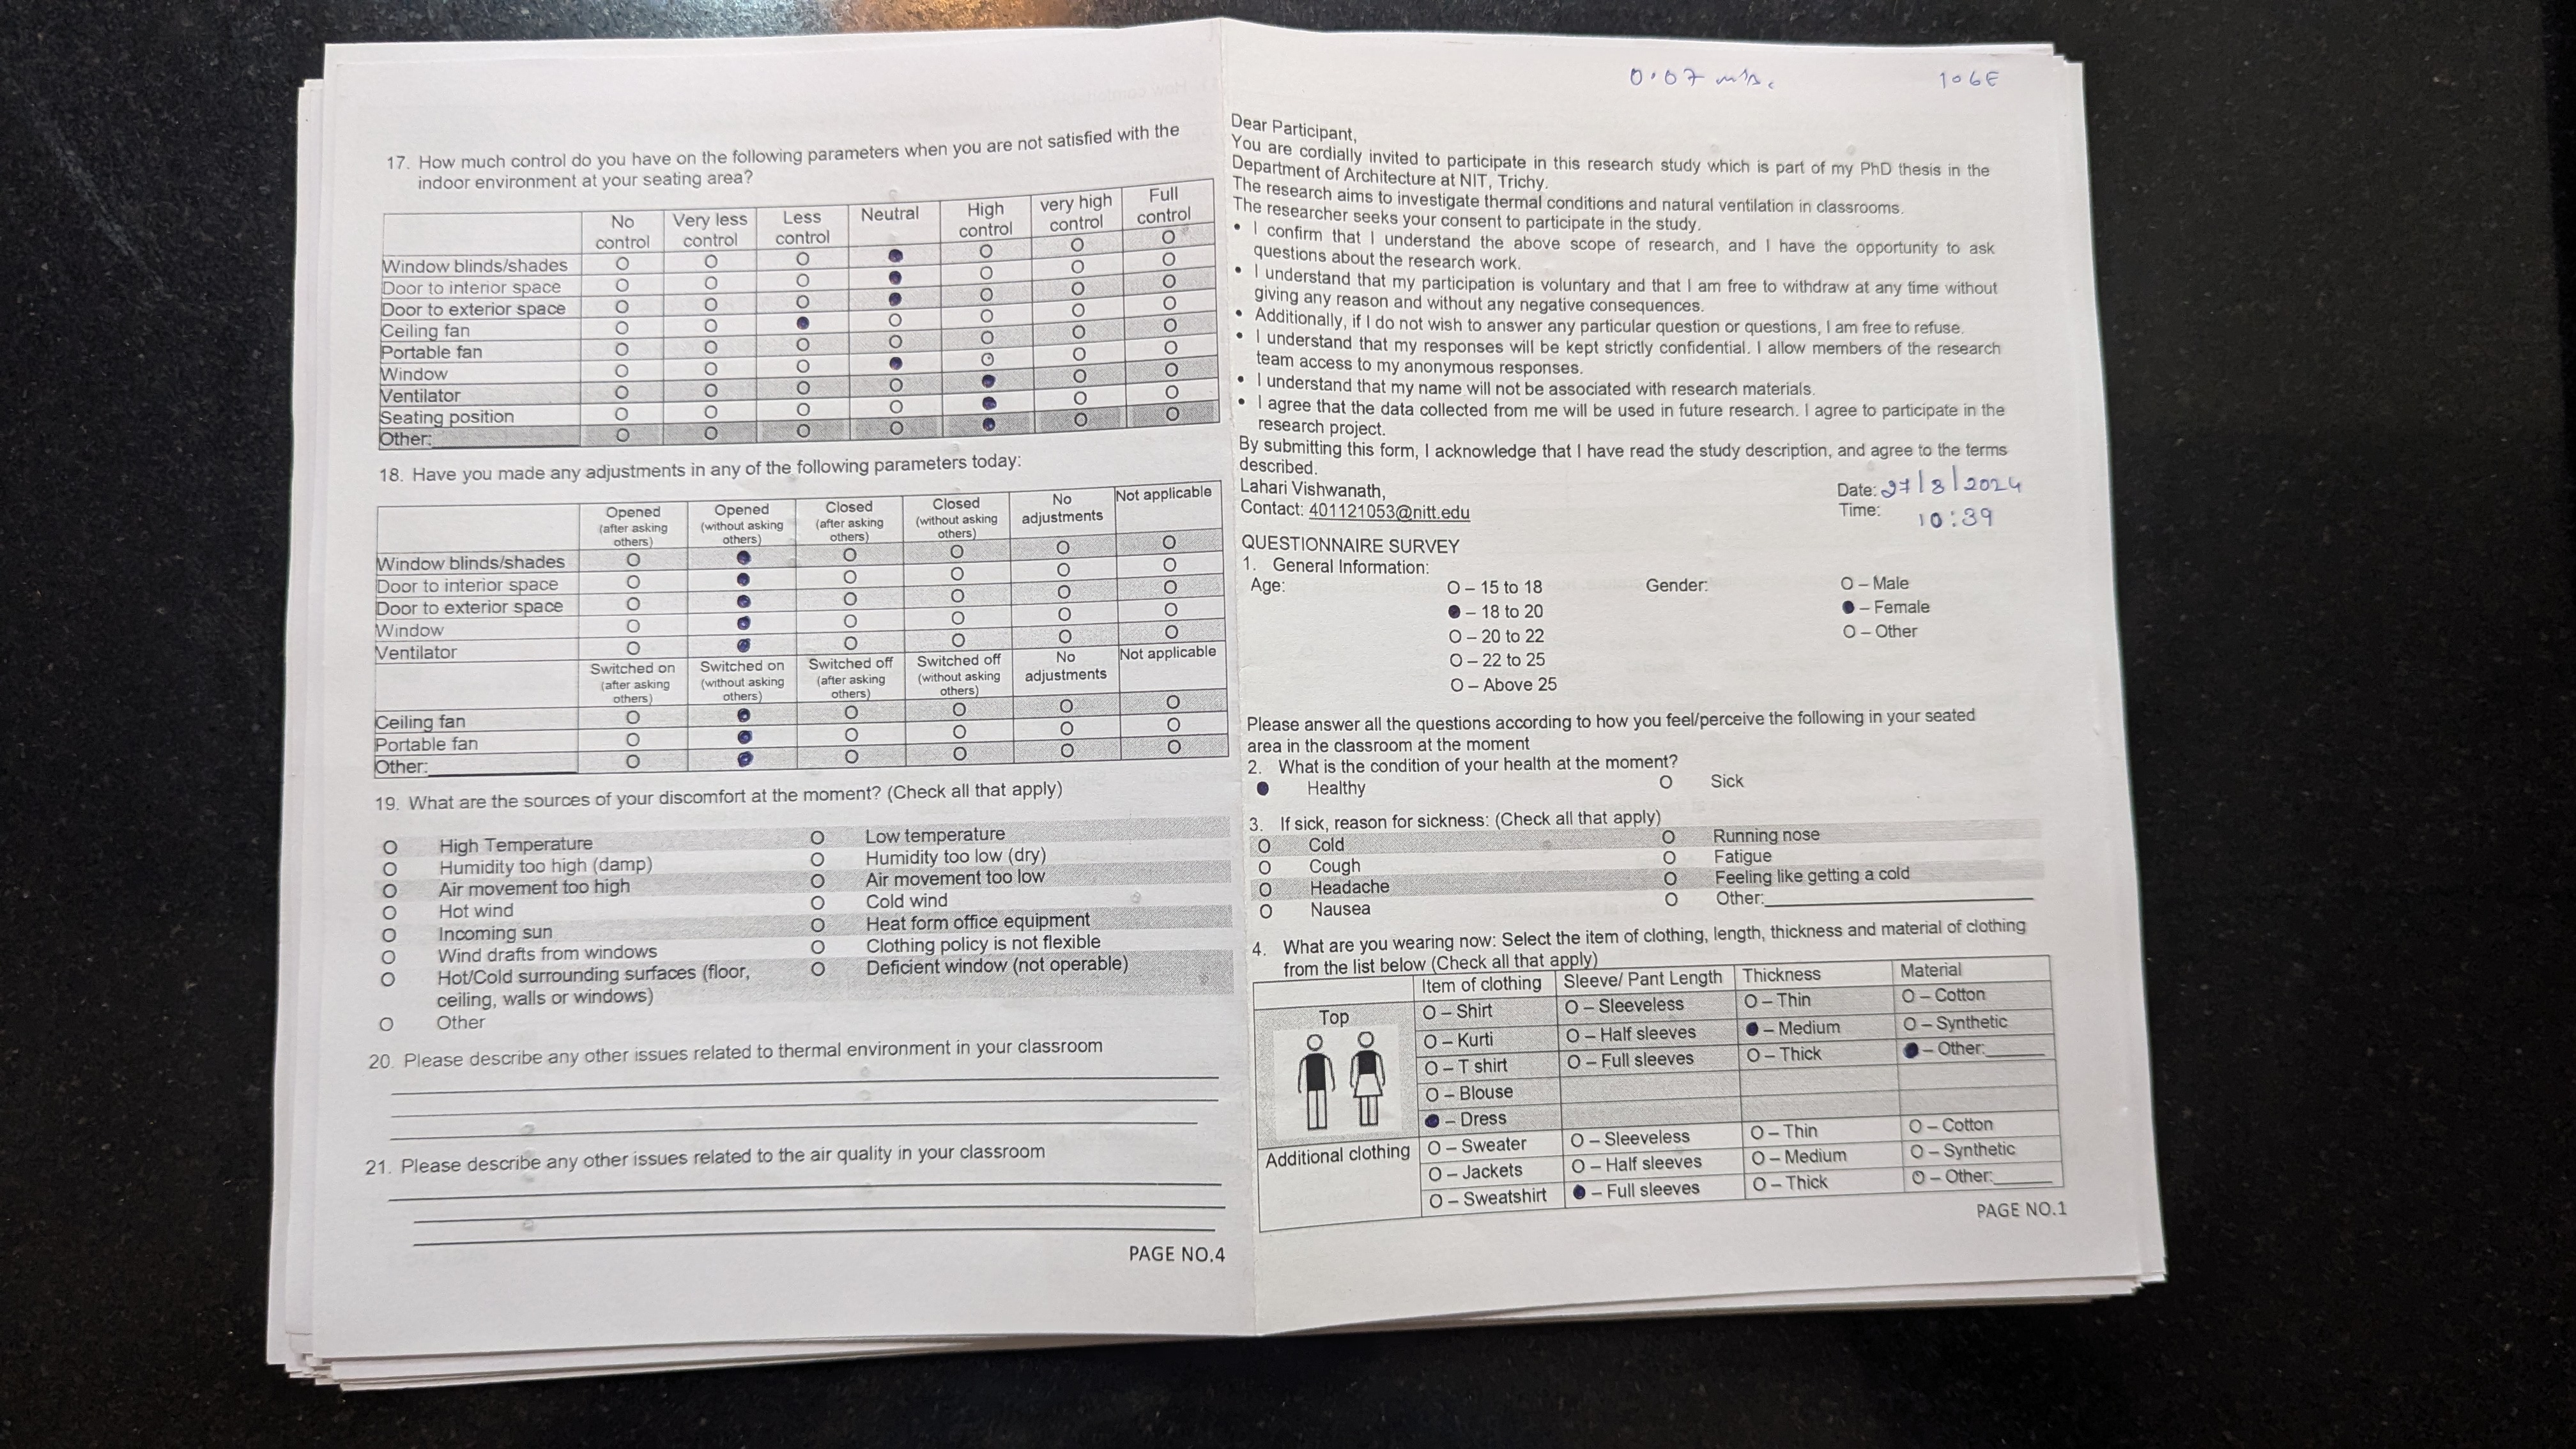 17. How much control do you have on the following parameters when you are not satisfied with the
indoor environment at your seating area?
No control Very less control Less control Neutral High control very high control Full control
Window blinds/shades O O O ● O O O
Door to interior space O O O ● O O O
Door to exterior space O O O ● O O O
Ceiling fan O O ● O O O O
Portable fan O O O O O O O
Window O O O ● O O O
Ventilator O O O O ● O O
Seating position O O O O ● O O
Other:__________ O O O O ● O O
18. Have you made any adjustments in any of the following parameters today:
Opened (after asking others) Opened (without asking others) Closed (after asking others) Closed (without asking others) No adjustments Not applicable
Window blinds/shades O ● O O O O
Door to interior space O ● O O O O
Door to exterior space O ● O O O O
Window O ● O O O O
Ventilator O ● O O O O
Switched on (after asking others) Switched on (without asking others) Switched off (after asking others) Switched off (without asking others) No adjustments Not applicable
Ceiling fan O ● O O O O
Portable fan O ● O O O O
Other:__________ O ● O O O O
19. What are the sources of your discomfort at the moment? (Check all that apply)
O High Temperature O Low temperature
O Humidity too high (damp) O Humidity too low (dry)
O Air movement too high O Air movement too low
O Hot wind O Cold wind
O Incoming sun O Heat form office equipment
O Wind drafts from windows O Clothing policy is not flexible
O Hot/Cold surrounding surfaces (floor, O Deficient window (not operable)
ceiling, walls or windows)
O Other
20. Please describe any other issues related to thermal environment in your classroom
21. Please describe any other issues related to the air quality in your classroom
PAGE NO.4
0.07 m/s. 106E
Dear Participant,
You are cordially invited to participate in this research study which is part of my PhD thesis in the
Department of Architecture at NIT, Trichy.
The research aims to investigate thermal conditions and natural ventilation in classrooms.
The researcher seeks your consent to participate in the study.
• I confirm that I understand the above scope of research, and I have the opportunity to ask
questions about the research work.
• I understand that my participation is voluntary and that I am free to withdraw at any time without
giving any reason and without any negative consequences.
• Additionally, if I do not wish to answer any particular question or questions, I am free to refuse.
• I understand that my responses will be kept strictly confidential. I allow members of the research
team access to my anonymous responses.
• I understand that my name will not be associated with research materials.
• I agree that the data collected from me will be used in future research. I agree to participate in the
research project.
By submitting this form, I acknowledge that I have read the study description, and agree to the terms
described.
Lahari Vishwanath, Date: 27/8/2024
Contact: 401121053@nitt.edu Time: 10:39
QUESTIONNAIRE SURVEY
1. General Information:
Age: O – 15 to 18 Gender: O – Male
● – 18 to 20 ● – Female
O – 20 to 22 O – Other
O – 22 to 25
O – Above 25
Please answer all the questions according to how you feel/perceive the following in your seated
area in the classroom at the moment
2. What is the condition of your health at the moment?
● Healthy O Sick
3. If sick, reason for sickness: (Check all that apply)
O Cold O Running nose
O Cough O Fatigue
O Headache O Feeling like getting a cold
O Nausea O Other:__________
4. What are you wearing now: Select the item of clothing, length, thickness and material of clothing
from the list below (Check all that apply)
Item of clothing Sleeve/ Pant Length Thickness Material
Top O – Shirt O – Sleeveless O – Thin O – Cotton
O – Kurti O – Half sleeves ● – Medium O – Synthetic
O – T shirt O – Full sleeves O – Thick ● – Other:______
O – Blouse
● – Dress
Additional clothing O – Sweater O – Sleeveless O – Thin O – Cotton
O – Jackets O – Half sleeves O – Medium O – Synthetic
O – Sweatshirt ● – Full sleeves O – Thick O – Other:______
PAGE NO.1